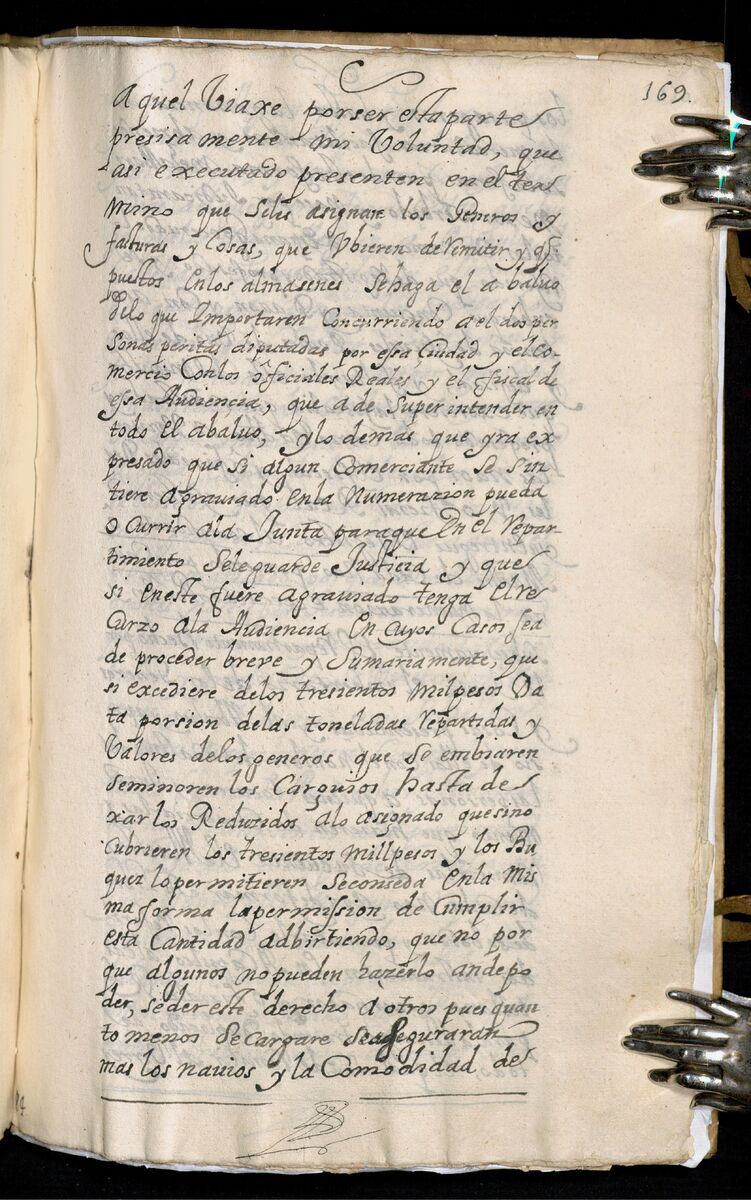 169.
aquel Viaxe por ser esta parte
presisa mente mi Voluntad, que
asi executado presenten en el ter
mino que Seles asignare los Generos y
facturas y Cosas, que Vbieren de remitir y q.
puestos enlos almasenes sehaga el abaluo
delo que Importaren Concurriendo a el dos per
sonas peritas diputadas por essa Ciudad y el Co-
mercio Conlos officiales Reales y el fiscal de
essa Audiencia, que a de Super intender en
todo el abaluo, y lo demas que yra ex
presado que si algun Comerciante se sin
tiere agrauiado enla Numerazion pueda
o currir ala Junta paraque en el repar-
timiento Seleguarde Justicia y que
si eneste fuere agrauiado tenga el re
curzo ala Audiencia en cuyos Casos sea
de proceder breve y Sumariamente, que
si excediere delos tresientos mil pesos Da
ta porsion delas toneladas repartidas y
Valores delos generos que se embiaren
seminoren los Carguios hasta de
xarlos Reduzidos alo asignado que sino
cubrieren los tresientos mill pesos y los Bu
ques lo permitieren seconseda enla mis
ma forma la permission de Cumplir
esta Cantidad adbirtiendo, que no por
que algunos no pueden hazerlo an de po
der, seder este derecho a otros pues quan
to menos se cargare se aseguraran
mas los nauios y la Comodidad de